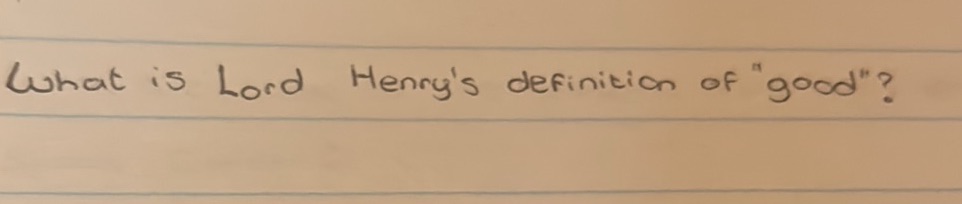 What is Lord Henry's definition of "good"?